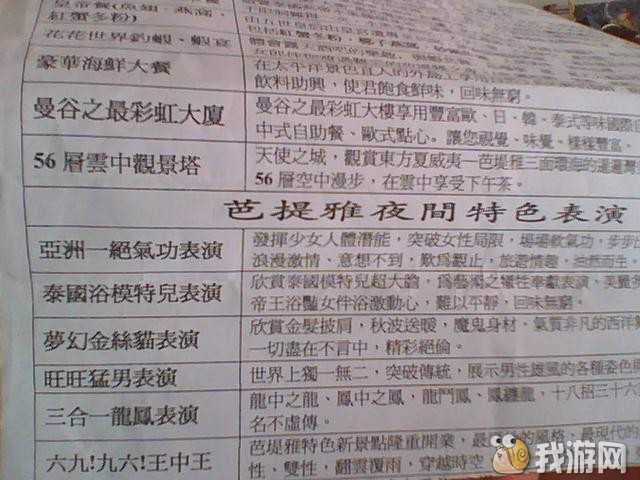 皇帝餐(魚翅、燕窩、
紅蟹多粉)
花花世界釣蝦、蝦宴
豪華海鮮大餐
飲料助興，使君飽食鮮味，回味無窮。
曼谷之最彩虹大廈
曼谷之最彩虹大樓享用豐富歐、日、韓、泰式等味國際
中式自助餐、歐式點心。讓您視覺、味覺，樣樣豐富。
56 層雲中觀景塔
天使之城，觀賞東方夏威夷—芭堤雅三面環海的
56 層空中漫步，在雲中享受下午茶。
芭提雅夜間特色表演
亞洲一絕氣功表演
發揮少女人體潛能，突破女性局限，
浪漫激情、意想不到，歎為觀止，旅遊情趣，油然而生。
泰國浴模特兒表演
欣賞泰國模特兒超大膽，為藝獨之犧牲奉獻表演，
帝王浴豔女伴浴激動心，難以平靜，回味無窮。
夢幻金絲貓表演
欣賞金髮披肩，秋波送暖，魔鬼身材，氣質非凡的西洋
一切盡在不言中，精彩絕倫。
旺旺猛男表演
世界上獨一無二，突破傳統，展示男性雄風的各種姿色
三合一龍鳳表演
龍中之龍、鳳中之鳳，龍鬥鳳、鳳纏龍，十八招三十六
名不虛傳。
六九!九六!王中王
芭堤雅特色新景點隆重開業，
性、雙性，翻雲覆雨，穿越時空
我游网